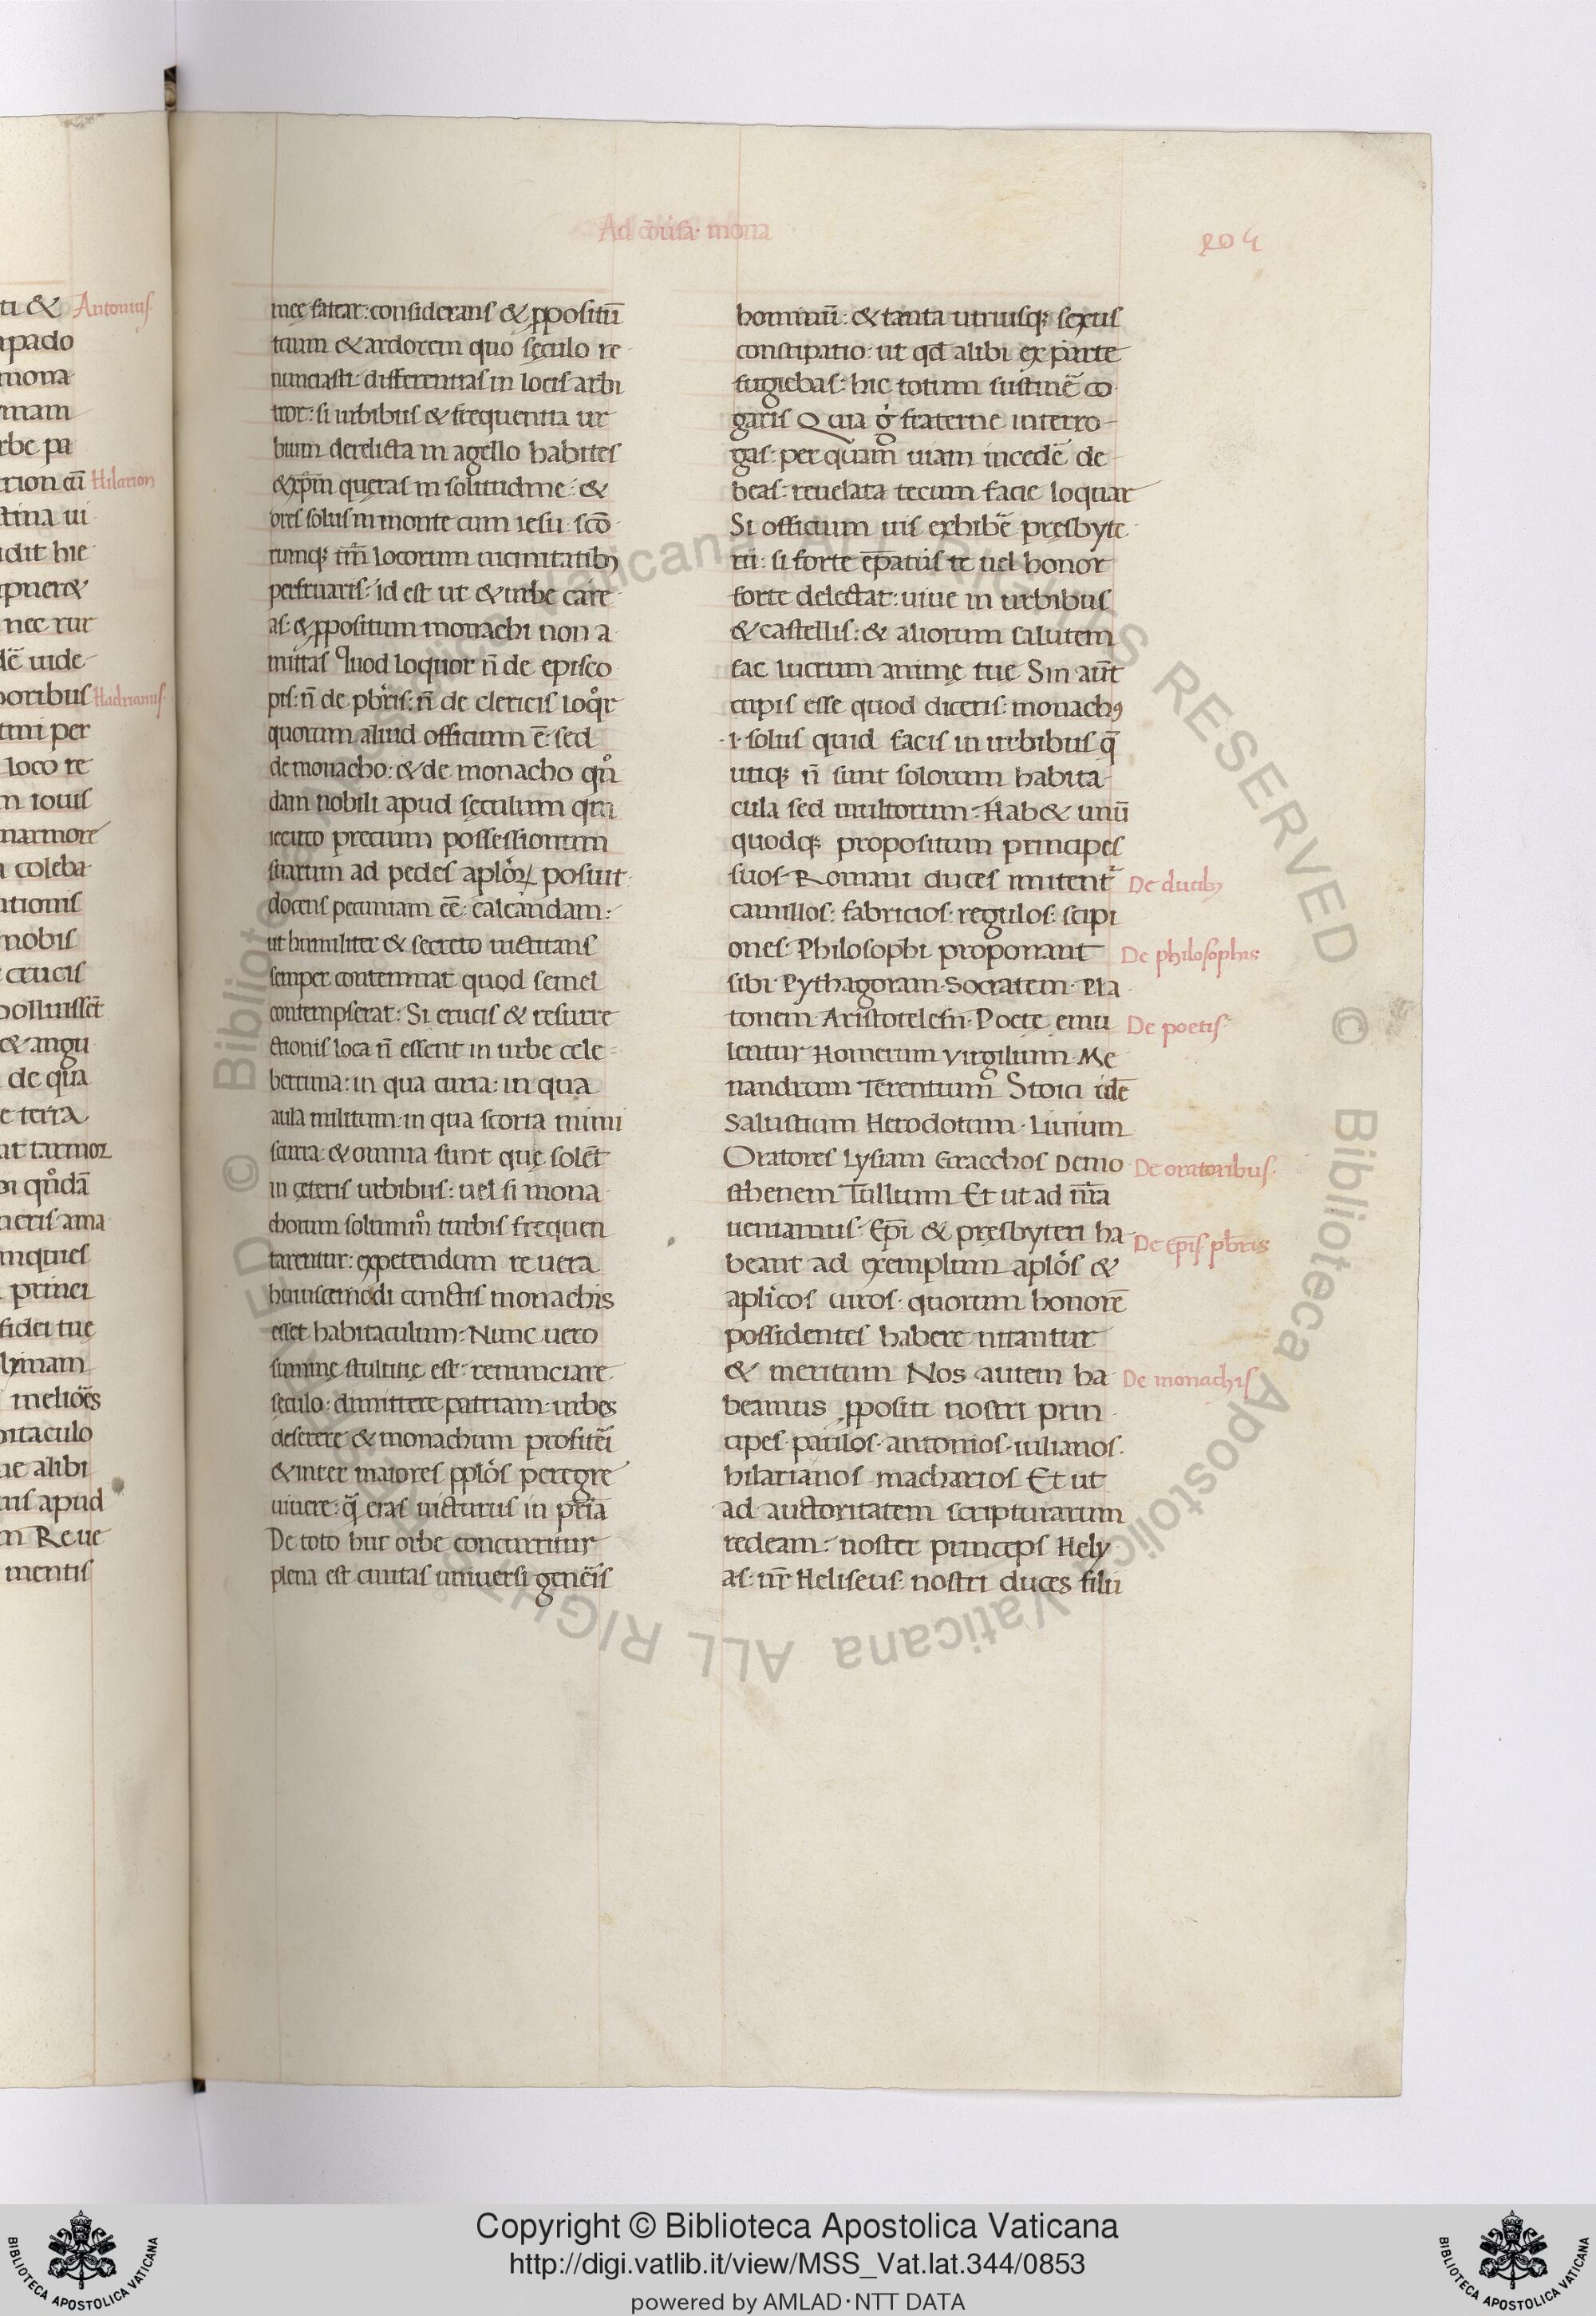 ti &
Antonius
apado
mona
rbe pa
Hilarion
stina ui
idit hie
nec rur
dē uide
poribus
Hadrianus
tmi per
loco re
m iouis
marmore
a coleba
ationis
nobis
crucis
polluissēt
& angu
de qua
e terra
at tarmoꝝ
neris ama
inquies
princi
fidei tuę
meliōēs
bitaculo
ue alibi
tus apud
m Reue
mentis
Ad cōuisā· mona
204
meę fatear: considerans & ꝓpositū
tuum & ardorem quo sęculo re
nunciasti· differentias in locis arbi
tror: si urbibus & frequentia ur
bium derelicta in agello habites
& xp̄m quęras in solitudine: &
ores solus in monte cum iesu: scō
rumq; tm̄ locorum uicinitatibꝰ
perfruaris: id est ut & urbe care
as: & ꝓpositum monachi non a
mittas Quod loquor n̄ de episco
pis: n̄ de pb̄ris: n̄ de clericis loqͦr
quorum aliud officium ē: sed
de monacho: & de monacho qͦn
dam nobili apud sęculum qui
iccirco precium possessionum
suarum ad pedes aplo᷒ꝝ posuit
docens pecuniam eē: calcandam:
ut humiliter & secreto uictitans
semper contemnat quod semel
contempserat: Si crucis & resurre
ctionis loca n̄ essent in urbe cele
berrima: in qua curia: in qua
aula militum: in qua scorta mimi
scurra: & omnia sunt quę solēt
in ceteris urbibus: uel si mona
chorum solummͦ turbis frequen
tarentur: expetendum reuera
huiuscemodi cunctis monachis
esset habitaculum: Nunc uero
summę stultitię est: renunciare
sęculo: dimittere patriam: urbes
deserere & monachum profitēi
& inter maiores ppl̄os peregre
uiuere: q̄ eras uicturus in pr̄ia
De toto huc orbe concurritur
plena est ciuitas uniuersi genēis
hominū: & tanta utriusq; sexus
constipatio: ut qd̄ alibi ex parte
fugiebas: hic totum sustinē co
garis Quia g̊ fraterne interro
gas: per quam uiam incedē de
beas: reuelata tecum facie loquar
Si officium uis exhibē presbyte
rii: si forte ep̄atus te uel honor
forte delectat: uiue in urbibus
& castellis: & aliorum salutem
fac lucrum animę tuę Sin aut̄
cupis esse quod diceris: monachꝰ
·i· solus quid facis in urbibus q̄
utiq; n̄ sunt solorum habita
cula sed multorum: Hab& unū
quodq; propositum principes
suos· Romani duces imitent᷒
De ducibꝰ
camillos: fabricios: regulos: scipi
ones· Philosophi proponant
De philosophis
sibi Pythagoram· Socratem· Pla
tonem· Aristotelem· Poetę emu
De poetis·
lentur Homerum Virgilium· Me
nandrum Terentium Stoici
Salustium Herodotum· Liuium
Oratores Lysiam Gracchos Demo
De oratoribus·
sthenem Tullium Et ut ad nr̄a
ueniamus· Ep̄i & presbyteri ha
De ep̄is pb̄ris
beant ad exemplum aplōs &
aplicos uiros· quorum honorē
possidentes habere nitantur
& meritum Nos autem ha
De monachis
beamus ꝓpositi nostri prin
cipes· paulos· antonios· iulianos·
hilarianos macharios Et ut
ad auctoritatem scripturarum
redeam: noster princeps Hely
as: nr̄ Heliseus: nostri duces filii
© Biblioteca Apostolica Vaticana ALL RIGHTS RESERVED © Biblioteca Apostolica Vaticana ALL RIGHTS RESERVED
Copyright © Biblioteca Apostolica Vaticana
http://digi.vatlib.it/view/MSS_Vat.lat.344/0853
powered by AMLAD·NTT DATA
BIBLIOTECA APOSTOLICA VATICANA
BIBLIOTECA APOSTOLICA VATICANA